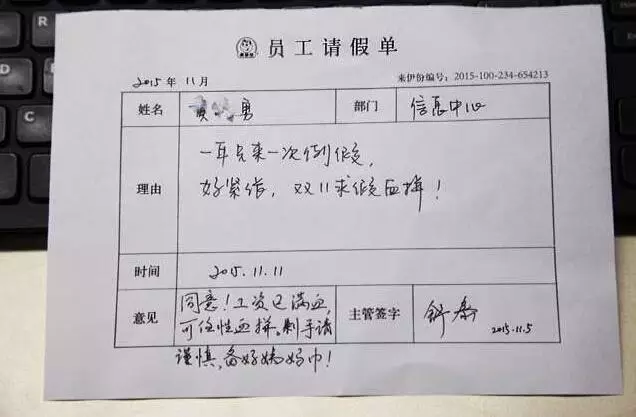 员工请假单
2015年11月 来伊份编号：2015-100-234-654213
姓名 黄 勇 部门 信息中心
一年只来一次例假，
理由
好紧张，双11求假血拼！
时间 2015.11.11
同意！工资已满血，
意见 可任性血拼。剁手请 主管签字 2015.11.5
谨慎，备好姨妈巾！